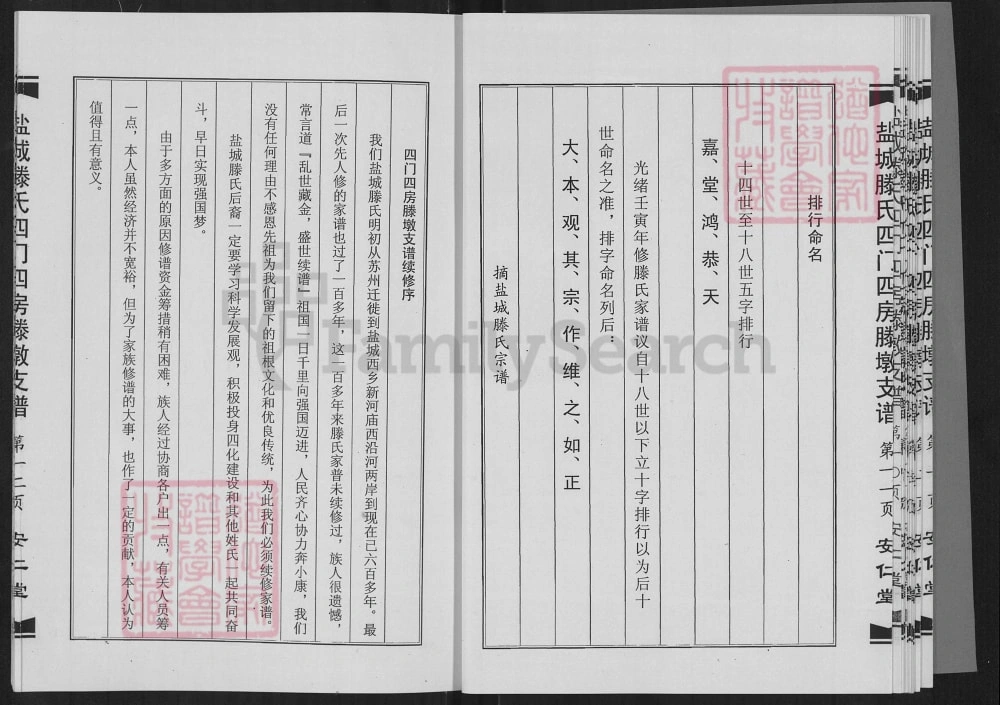 盐城滕氏四门四房滕墩支谱 第一一页 安仁堂
排行命名
十四世至十八世五字排行
嘉、堂、鸿、恭、天
光绪壬寅年修滕氏家谱议自十八世以下立十字排行以为后十
世命名之准，排字命名列后：
大、本、观、其、宗、作、维、之、如、正
摘盐城滕氏宗谱
四门四房滕墩支谱续修序
我们盐城滕氏明初从苏州迁徙到盐城西乡新河庙西沿河两岸到现在已六百多年。最
后一次先人修的家谱也过了一百多年，这一百多年来滕氏家普未续修过，族人很遗憾，
常言道『乱世藏金，盛世续谱』祖国一日千里向强国迈进，人民齐心协力奔小康，我们
没有任何理由不感恩先祖为我们留下的祖根文化和优良传统，为此我们必须续修家谱。
盐城滕氏后裔一定要学习科学发展观，积极投身四化建设和其他姓氏一起共同奋
斗，早日实现强国梦。
由于多方面的原因修谱资金筹措稍有困难，族人经过协商各户出一点，有关人员筹
一点，本人虽然经济并不宽裕，但为了家族修谱的大事，也作了一定的贡献，本人认为
值得且有意义。
盐城滕氏四门四房滕墩支谱 第一二页 安仁堂
FamilySearch